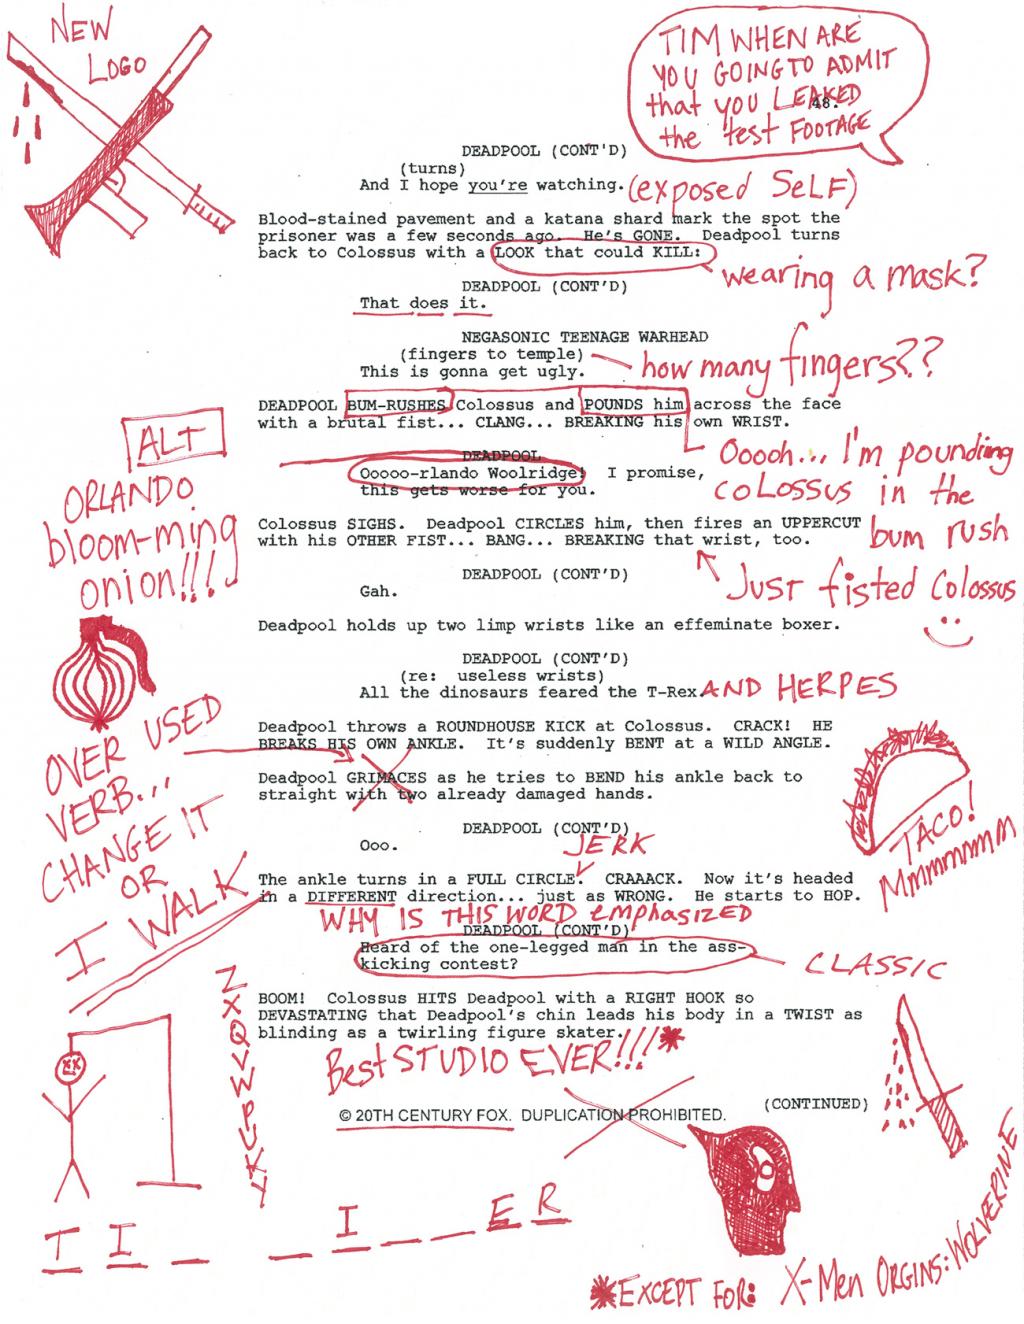 NEW
LOGO
TIM WHEN ARE
YOU GOING TO ADMIT
that you LEAKED
the test FOOTAGE
48.
DEADPOOL (CONT'D)
(turns)
And I hope you're watching. (exposed SELF)
Blood-stained pavement and a katana shard mark the spot the
prisoner was a few seconds ago. He's GONE. Deadpool turns
back to Colossus with a LOOK that could KILL:
wearing a mask?
DEADPOOL (CONT'D)
That does it.
NEGASONIC TEENAGE WARHEAD
(fingers to temple)
how many fingers??
This is gonna get ugly.
DEADPOOL BUM-RUSHES Colossus and POUNDS him across the face
with a brutal fist... CLANG... BREAKING his own WRIST.
Ooooh... I'm pounding
COLOSSUS in the
bum rush
ALT
ORLANDO
bloom-ming
onion!!!
DEADPOOL
Ooooo-rlando Woolridge! I promise,
this gets worse for you.
Colossus SIGHS. Deadpool CIRCLES him, then fires an UPPERCUT
with his OTHER FIST... BANG... BREAKING that wrist, too.
Just fisted Colossus
DEADPOOL (CONT'D)
Gah.
Deadpool holds up two limp wrists like an effeminate boxer.
DEADPOOL (CONT'D)
(re: useless wrists)
All the dinosaurs feared the T-Rex. AND HERPES
Deadpool throws a ROUNDHOUSE KICK at Colossus. CRACK! HE
BREAKS HIS OWN ANKLE. It's suddenly BENT at a WILD ANGLE.
OVER USED
VERB...
CHANGE IT
OR
I WALK
Deadpool GRIMACES as he tries to BEND his ankle back to
straight with two already damaged hands.
TACO!
Mmmmmmm
DEADPOOL (CONT'D)
Ooo.
JERK
The ankle turns in a FULL CIRCLE. CRAAACK. Now it's headed
in a DIFFERENT direction... just as WRONG. He starts to HOP.
WHY IS THIS WORD emphasized
DEADPOOL (CONT'D)
Heard of the one-legged man in the ass-
kicking contest?
CLASSIC
BOOM! Colossus HITS Deadpool with a RIGHT HOOK so
DEVASTATING that Deadpool's chin leads his body in a TWIST as
blinding as a twirling figure skater.
Best STUDIO EVER!!!*
© 20TH CENTURY FOX. DUPLICATION PROHIBITED.
(CONTINUED)
ZXQVWPUKY
T I _ _ _ I _ _ E R
*EXCEPT FOR: X-Men ORGINS: WOLVERINE